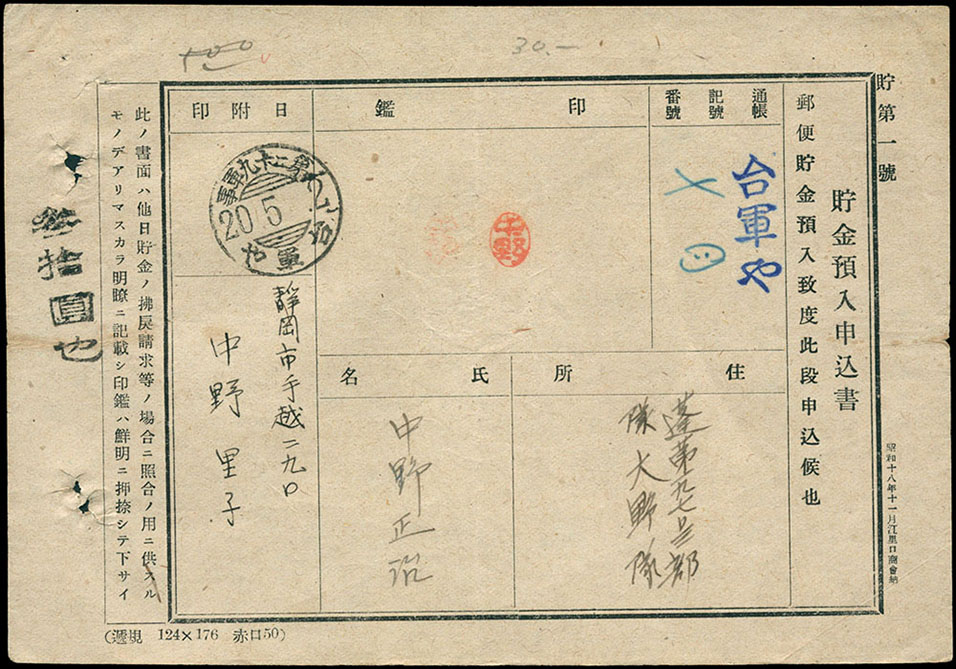 貯第一號
貯金預入申込書
郵便貯金預入致度此段申込候也
昭和十八年十一月江里口商會納
通帳
記號
番號
台軍や
印鑑
中野
日附印
20 5
住所
大野隊
氏名
中野正治
静岡市手越二九〇
中野里子
此ノ書面ハ他日貯金ノ拂戻請求等ノ場合ニ照合ノ用ニ供スル
モノデアリマスカラ明瞭ニ記載シ印鑑ハ鮮明ニ押捺シテ下サイ
参拾圓也
30.—
500
(遞規 124×176 赤口50)